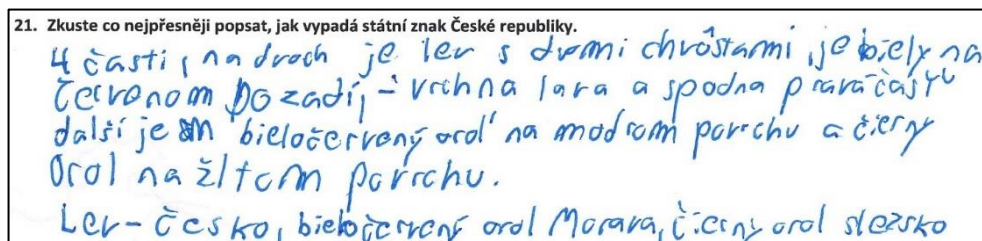 21. Zkuste co nejpřesněji popsat, jak vypadá státní znak České republiky.
4 časti, na dvoch je lev s dvomi chvostami, je biely na
červenom pozadí, - vrchna lava a spodna prava časť
další je bieločervený orol na modrom povrchu a čierny
Orol na žltom povrchu.
Lev - česko, bieločervený orol Morava, čierny orol slezsko